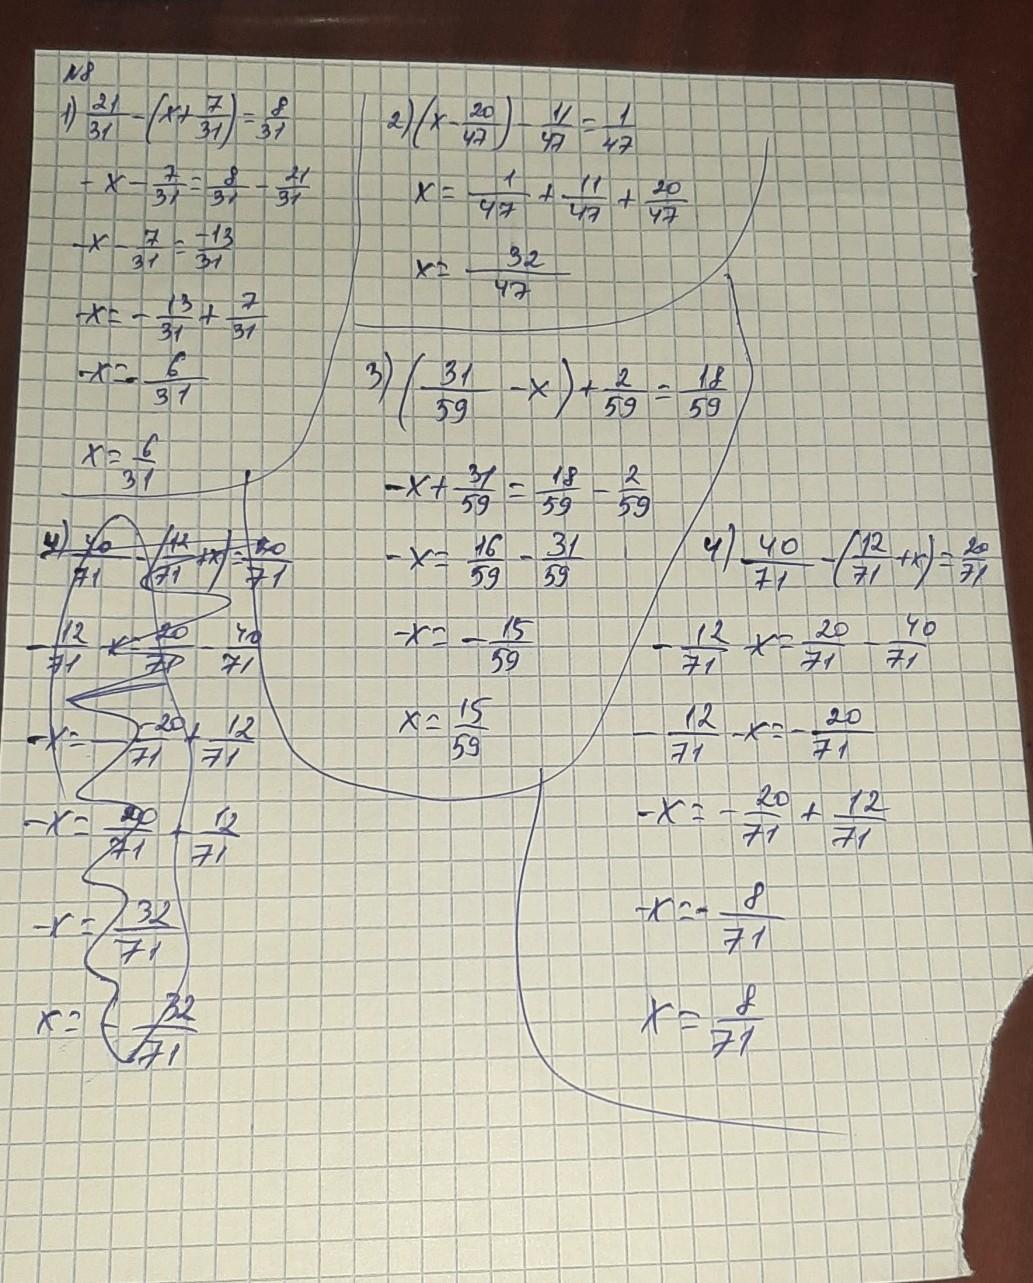 №8
1) 21/31 - (x + 7/31) = 8/31
- x - 7/31 = 8/31 - 21/31
-x - 7/31 = -13/31
-x = - 13/31 + 7/31
-x = - 6/31
x = 6/31
2) (x - 20/47) - 11/47 = 1/47
x = 1/47 + 11/47 + 20/47
x = 32/47
3) (31/59 - x) + 2/59 = 18/59
-x + 31/59 = 18/59 - 2/59
-x = 16/59 - 31/59
-x = - 15/59
x = 15/59
4) 40/71 - (12/71 + x) = 20/71
- 12/71 - x = 20/71 - 40/71
-x = - 20/71 + 12/71
-x = 20/71 + 12/71
-x = 32/71
x = - 32/71
4) 40/71 - (12/71 + x) = 20/71
- 12/71 - x = 20/71 - 40/71
- 12/71 - x = - 20/71
-x = - 20/71 + 12/71
-x = - 8/71
x = 8/71